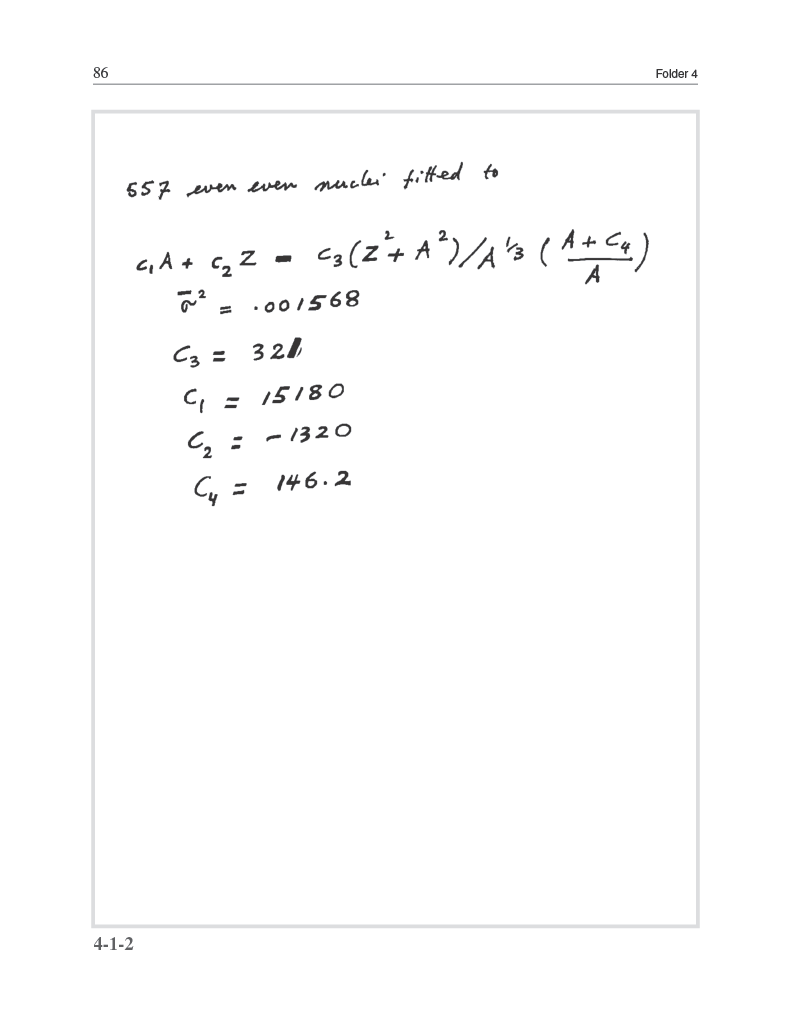 86 Folder 4
557 even even nuclei fitted to
c₁A + c₂Z - c₃(Z² + A²)/A^⅓ (A + C₄ / A)
σ̄² = .001568
C₃ = 321
C₁ = 15180
C₂ = -1320
C₄ = 146.2
4-1-2